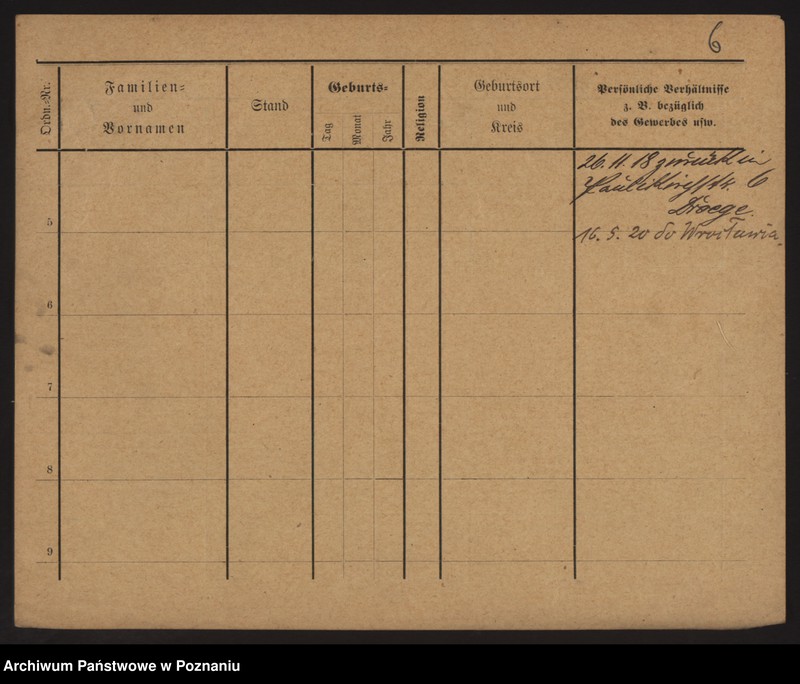 6
Ordn.-Nr.
Familien-
und
Vornamen
Stand
Geburts-
Tag
Monat
Jahr
Religion
Geburtsort
und
Kreis
Persönliche Verhältnisse
z. B. bezüglich
des Gewerbes usw.
26. 11. 18 zurück in
Paulikirchstr. 6
Droege.
16. 5. 20 do Wrocławia.
5
6
7
8
9
Archiwum Państwowe w Poznaniu